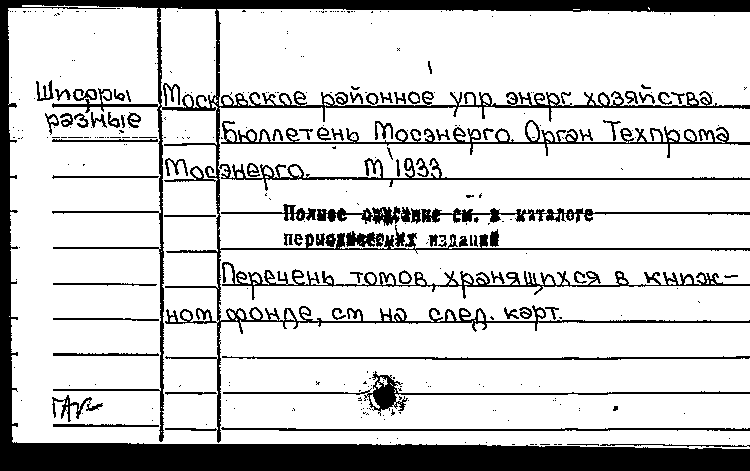 Шифры разные
Московское районное упр. энерг. хозяйства.
Бюллетень Мосэнерго. Орган Техпрома
Мосэнерго. М, 1933
Полное описание см. в каталоге
периодических изданий
Перечень томов, хранящихся в книж-
ном фонде, см на след. карт.